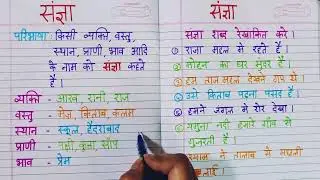 संज्ञा
परिभाषा: किसी व्यक्ति, वस्तु,
स्थान, प्राणी, भाव आदि
के नाम को संज्ञा कहते
हैं।
व्यक्ति - आरव, रानी, राज
वस्तु - मेज, किताब, कलम
स्थान - स्कूल, हैदराबाद
प्राणी - पक्षी, कुत्ता, साँप
भाव - प्रेम
संज्ञा
संज्ञा शब्द रेखांकित करें।
① राजा महल में रहते हैं।
② मोहन का घर सुंदर है।
③ हम ताज महल देखने गए थे।
④ उसे किताब पढ़ना पसंद है।
⑤ हमने जंगल में शेर देखा।
⑥ यमुना नदी हमारे गाँव से
गुजरती है।
तालाब में मछली